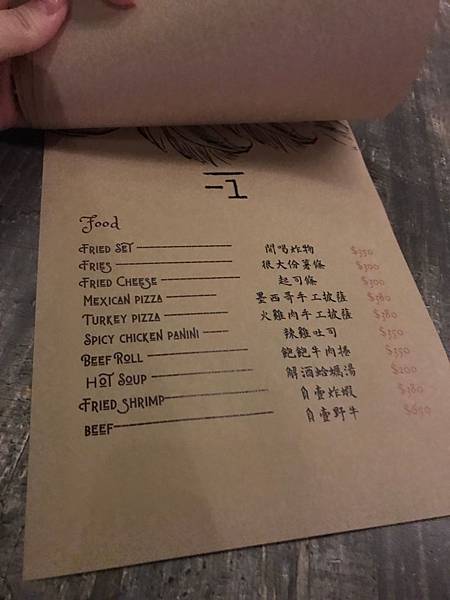 -1
Food
Fried Set 開喝炸物 $350
Fries 很大份薯條 $300
Fried Cheese 起司條 $300
Mexican pizza 墨西哥手工披薩 $380
Turkey pizza 火雞肉手工披薩 $380
Spicy chicken panini 辣雞吐司 $350
Beef Roll 飽飽牛肉捲 $350
Hot Soup 解酒蛤蠣湯 $200
Fried Shrimp 自壹炸蝦 $380
Beef 自壹野牛 $650